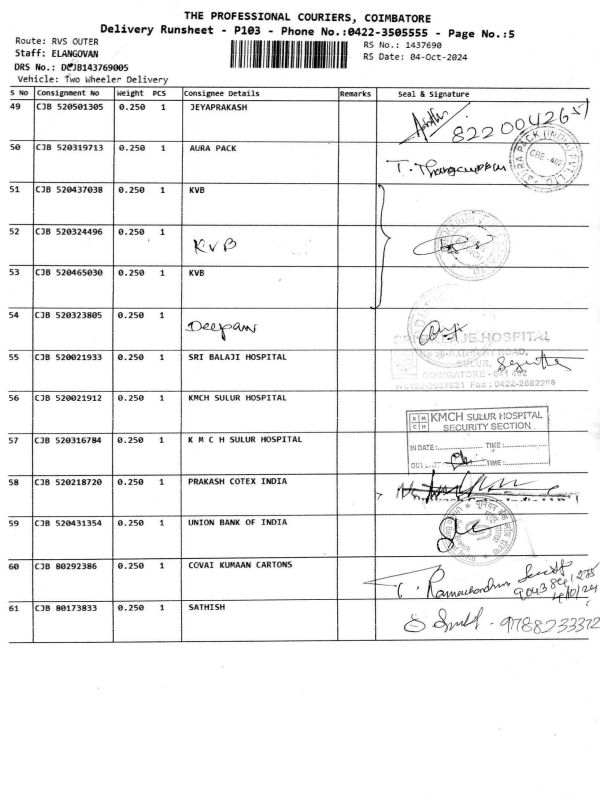 THE PROFESSIONAL COURIERS, COIMBATORE
Delivery Runsheet - P103 - Phone No.:0422-3505555 - Page No.:5
Route: RVS OUTER
RS No.: 1437690
Staff: ELANGOVAN
RS Date: 04-Oct-2024
DRS No.: DCJB143769005
Vehicle: Two Wheeler Delivery
S No Consignment No Weight PCS Consignee Details Remarks Seal & Signature
49 CJB 520501305 0.250 1 JEYAPRAKASH
50 CJB 520319713 0.250 1 AURA PACK
51 CJB 520437038 0.250 1 KVB
52 CJB 520324496 0.250 1 KVB
53 CJB 520465030 0.250 1 KVB
54 CJB 520323805 0.250 1 Deepan
55 CJB 520021933 0.250 1 SRI BALAJI HOSPITAL
56 CJB 520021912 0.250 1 KMCH SULUR HOSPITAL
KMCH SULUR HOSPITAL
SECURITY SECTION
IN DATE: TIME:
TIME:
57 CJB 520316784 0.250 1 K M C H SULUR HOSPITAL
58 CJB 520218720 0.250 1 PRAKASH COTEX INDIA
59 CJB 520431354 0.250 1 UNION BANK OF INDIA
60 CJB 80292386 0.250 1 COVAI KUMAAN CARTONS
4/10/24
61 CJB 80173833 0.250 1 SATHISH
9788233372